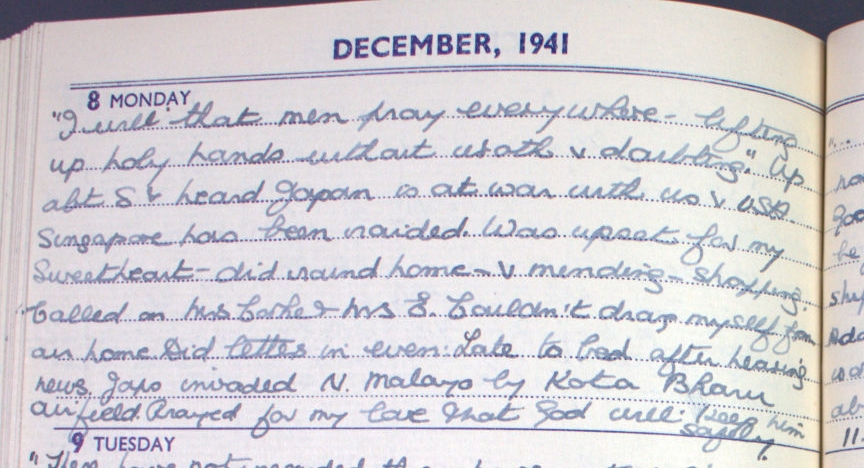 DECEMBER, 1941
8 MONDAY
"I will that men pray everywhere - lifting
up holy hands without wrath & doubting." Up
abt 8 & heard Japan is at war with us & USA.
Singapore has been raided. Was upset for my
Sweetheart - did round home - & mending - shopping.
Called on Mrs & Mrs E. Couldn't drag myself from
air home Did letter in even: Late to bed after hearing
news. Japs invaded N. Malaya by Kota Bharu
airfield. Prayed for my love that God will keep him
safely.
9 TUESDAY